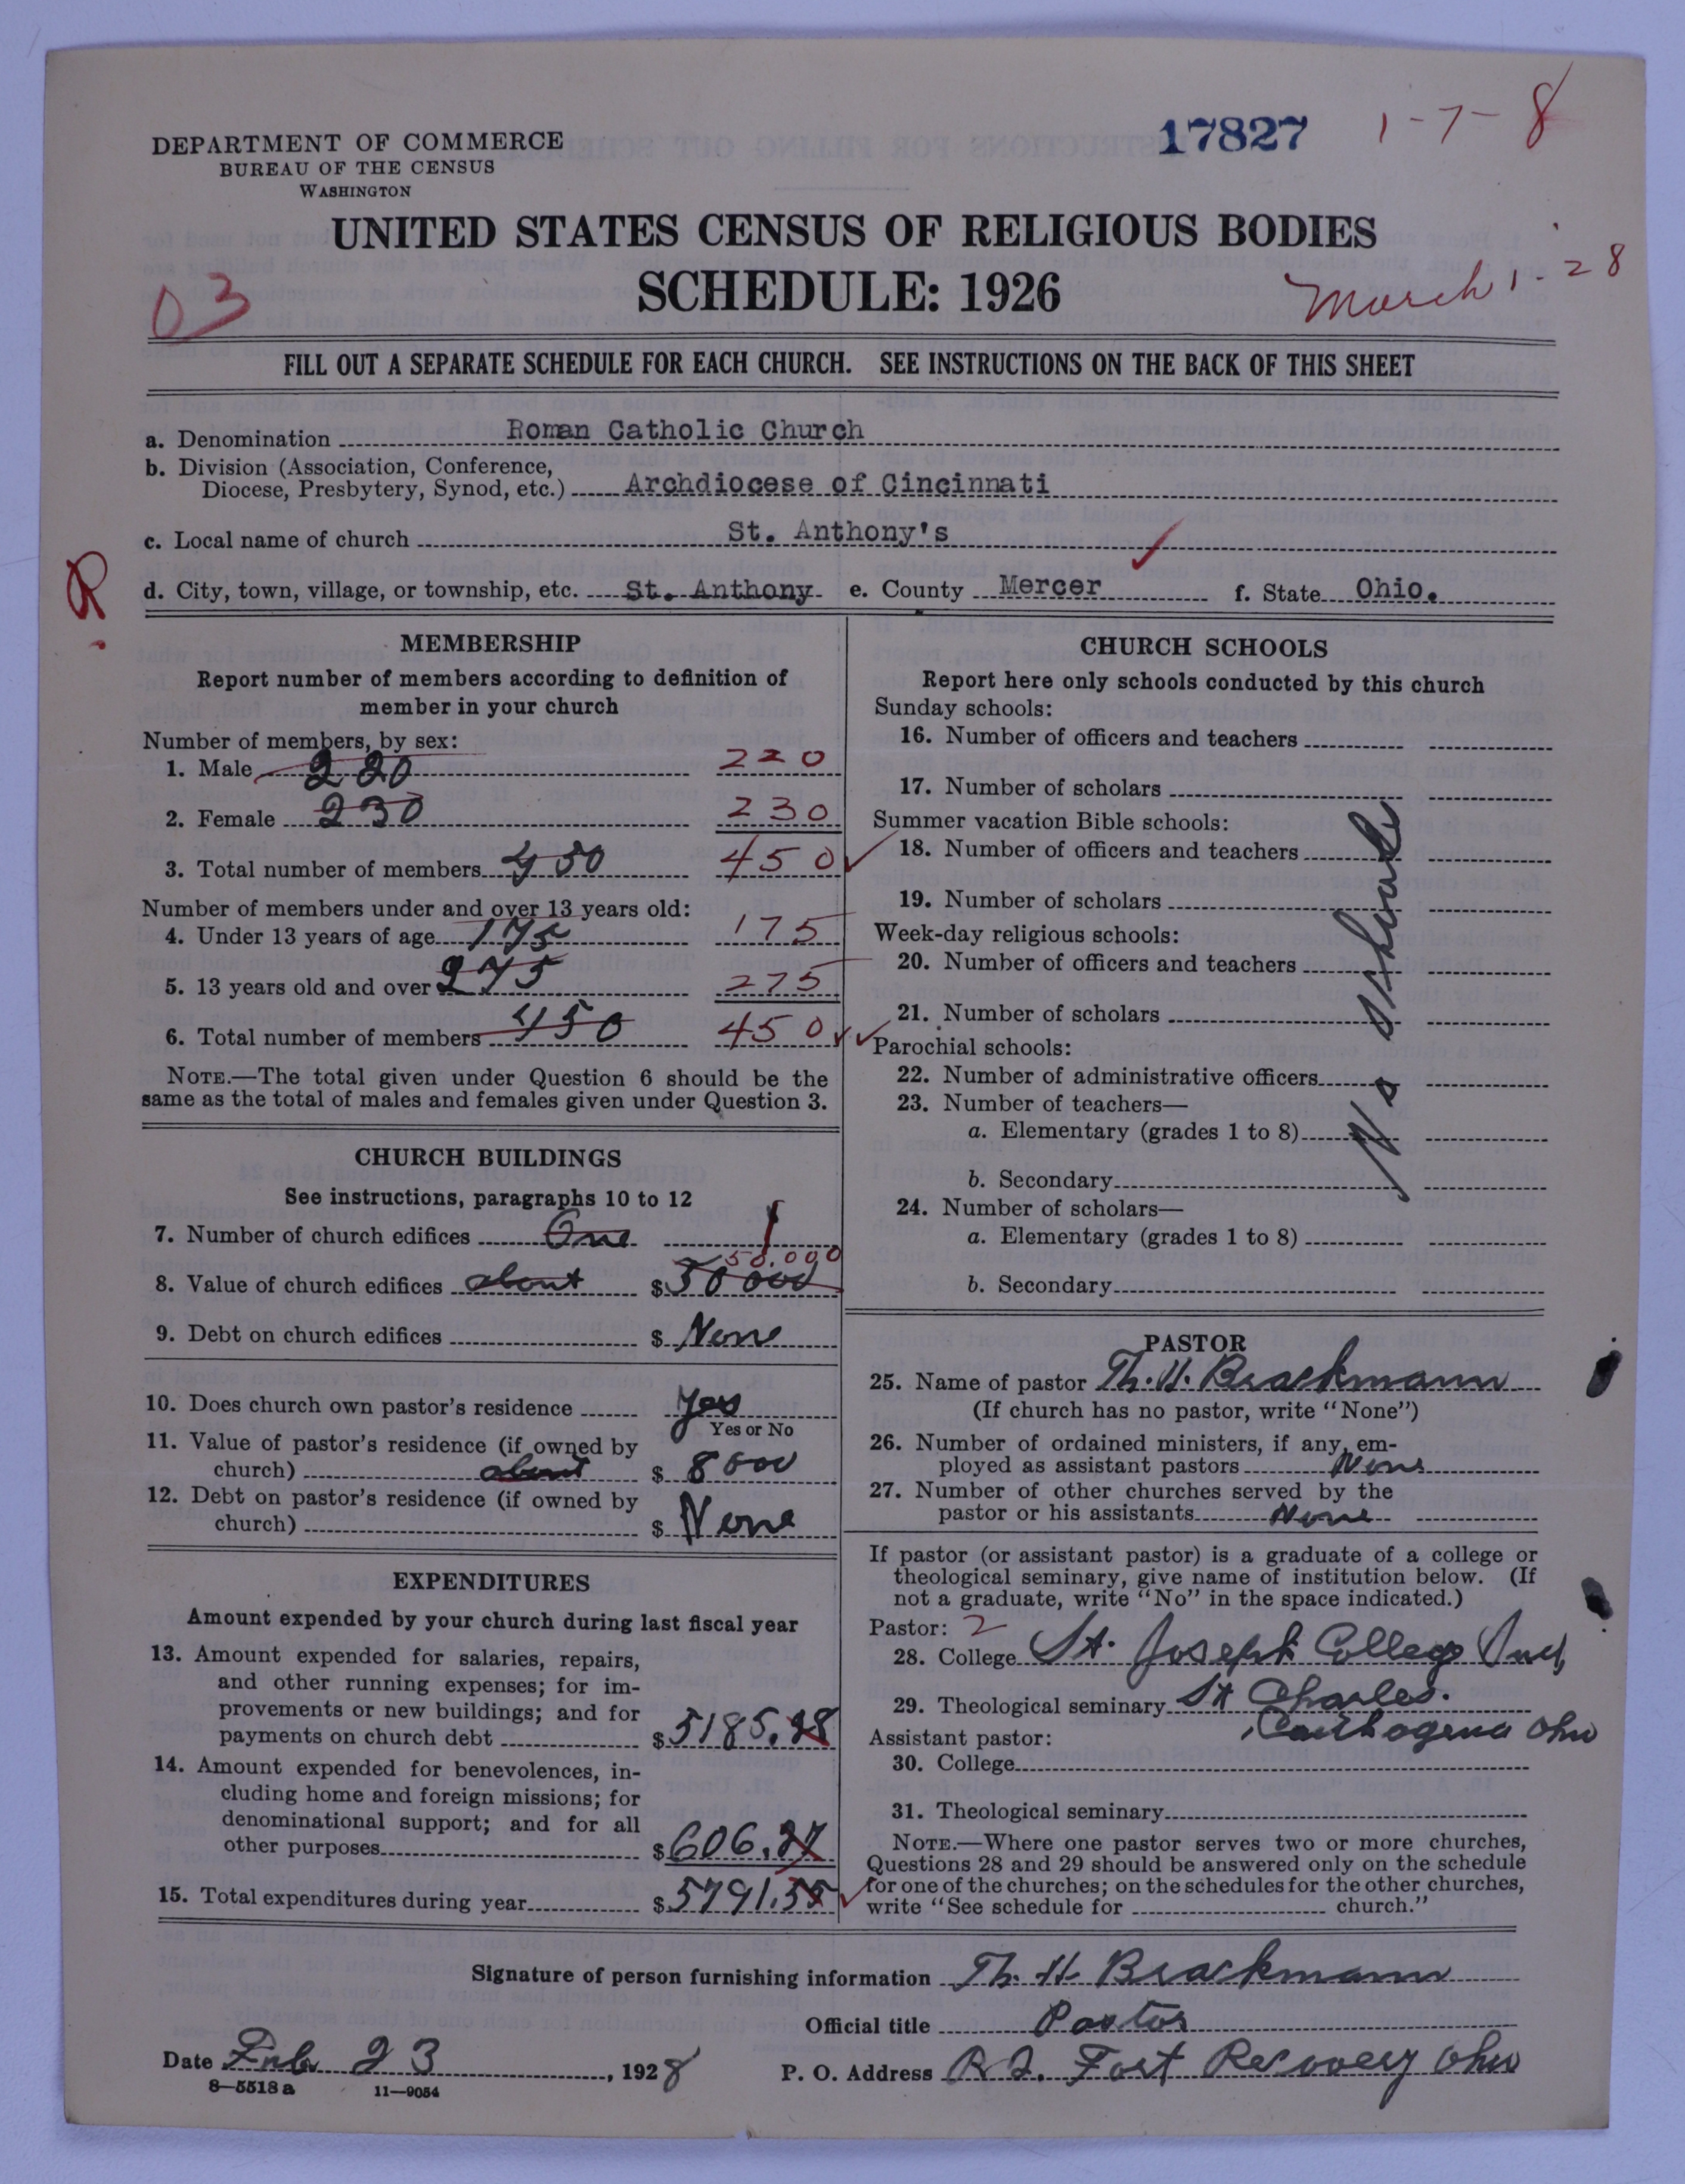 17827 1-7-8
DEPARTMENT OF COMMERCE
BUREAU OF THE CENSUS
WASHINGTON
UNITED STATES CENSUS OF RELIGIOUS BODIES
SCHEDULE: 1926
03
March 1-28
FILL OUT A SEPARATE SCHEDULE FOR EACH CHURCH. SEE INSTRUCTIONS ON THE BACK OF THIS SHEET
a. Denomination Roman Catholic Church
b. Division (Association, Conference,
Diocese, Presbytery, Synod, etc.) Archdiocese of Cincinnati
c. Local name of church St. Anthony's
R
d. City, town, village, or township, etc. St. Anthony e. County Mercer f. State Ohio.
MEMBERSHIP
Report number of members according to definition of
member in your church
Number of members, by sex:
1. Male 220 220
2. Female 230 230
3. Total number of members 450 450
Number of members under and over 13 years old:
4. Under 13 years of age 175 175
5. 13 years old and over 275 275
6. Total number of members 450 450
NOTE.—The total given under Question 6 should be the
same as the total of males and females given under Question 3.
CHURCH BUILDINGS
See instructions, paragraphs 10 to 12
7. Number of church edifices One 1
50.000
8. Value of church edifices about $50000
9. Debt on church edifices $ None
10. Does church own pastor's residence Yes
Yes or No
11. Value of pastor's residence (if owned by
church) about $ 8000
12. Debt on pastor's residence (if owned by
church) $ None
EXPENDITURES
Amount expended by your church during last fiscal year
13. Amount expended for salaries, repairs,
and other running expenses; for im-
provements or new buildings; and for
payments on church debt $5185.28
14. Amount expended for benevolences, in-
cluding home and foreign missions; for
denominational support; and for all
other purposes $606.27
15. Total expenditures during year $5791.55
CHURCH SCHOOLS
Report here only schools conducted by this church
Sunday schools:
16. Number of officers and teachers
17. Number of scholars
Summer vacation Bible schools:
18. Number of officers and teachers
19. Number of scholars
Week-day religious schools:
20. Number of officers and teachers
21. Number of scholars
Parochial schools:
22. Number of administrative officers
23. Number of teachers—
a. Elementary (grades 1 to 8)
b. Secondary
24. Number of scholars—
a. Elementary (grades 1 to 8)
b. Secondary
No
PASTOR
25. Name of pastor Th. H. Brackmann
(If church has no pastor, write "None")
26. Number of ordained ministers, if any, em-
ployed as assistant pastors None
27. Number of other churches served by the
pastor or his assistants None
If pastor (or assistant pastor) is a graduate of a college or
theological seminary, give name of institution below. (If
not a graduate, write "No" in the space indicated.)
Pastor: 2
28. College St. Joseph College Ind,
29. Theological seminary St Charles.
Carthagena Ohio
Assistant pastor:
30. College
31. Theological seminary
NOTE.—Where one pastor serves two or more churches,
Questions 28 and 29 should be answered only on the schedule
for one of the churches; on the schedules for the other churches,
write "See schedule for church."
Signature of person furnishing information Th. H. Brackmann
Official title Pastor
Date Feb 23, 1928 P. O. Address R 2. Fort Recovery Ohio
8—5518 a 11—9054